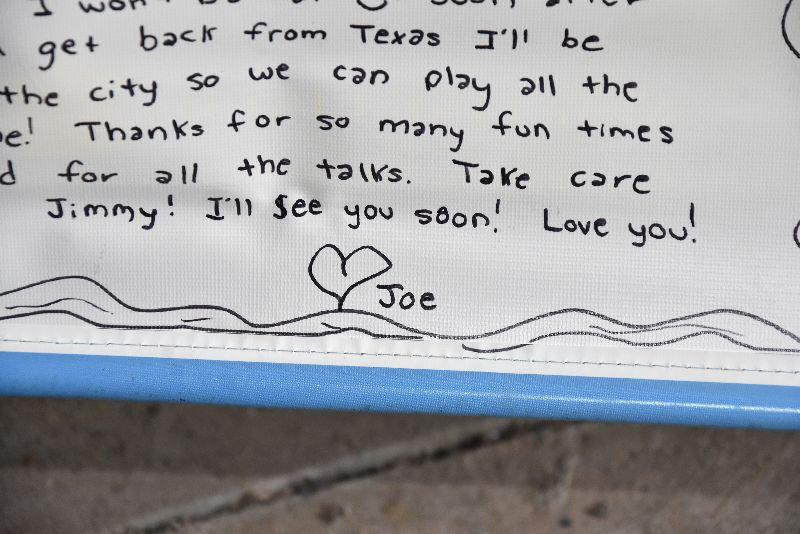 I won't
get back from Texas I'll be
the city so we can play all the
Thanks for so many fun times
for all the talks. Take care
Jimmy! I'll See you soon! Love you!
Joe